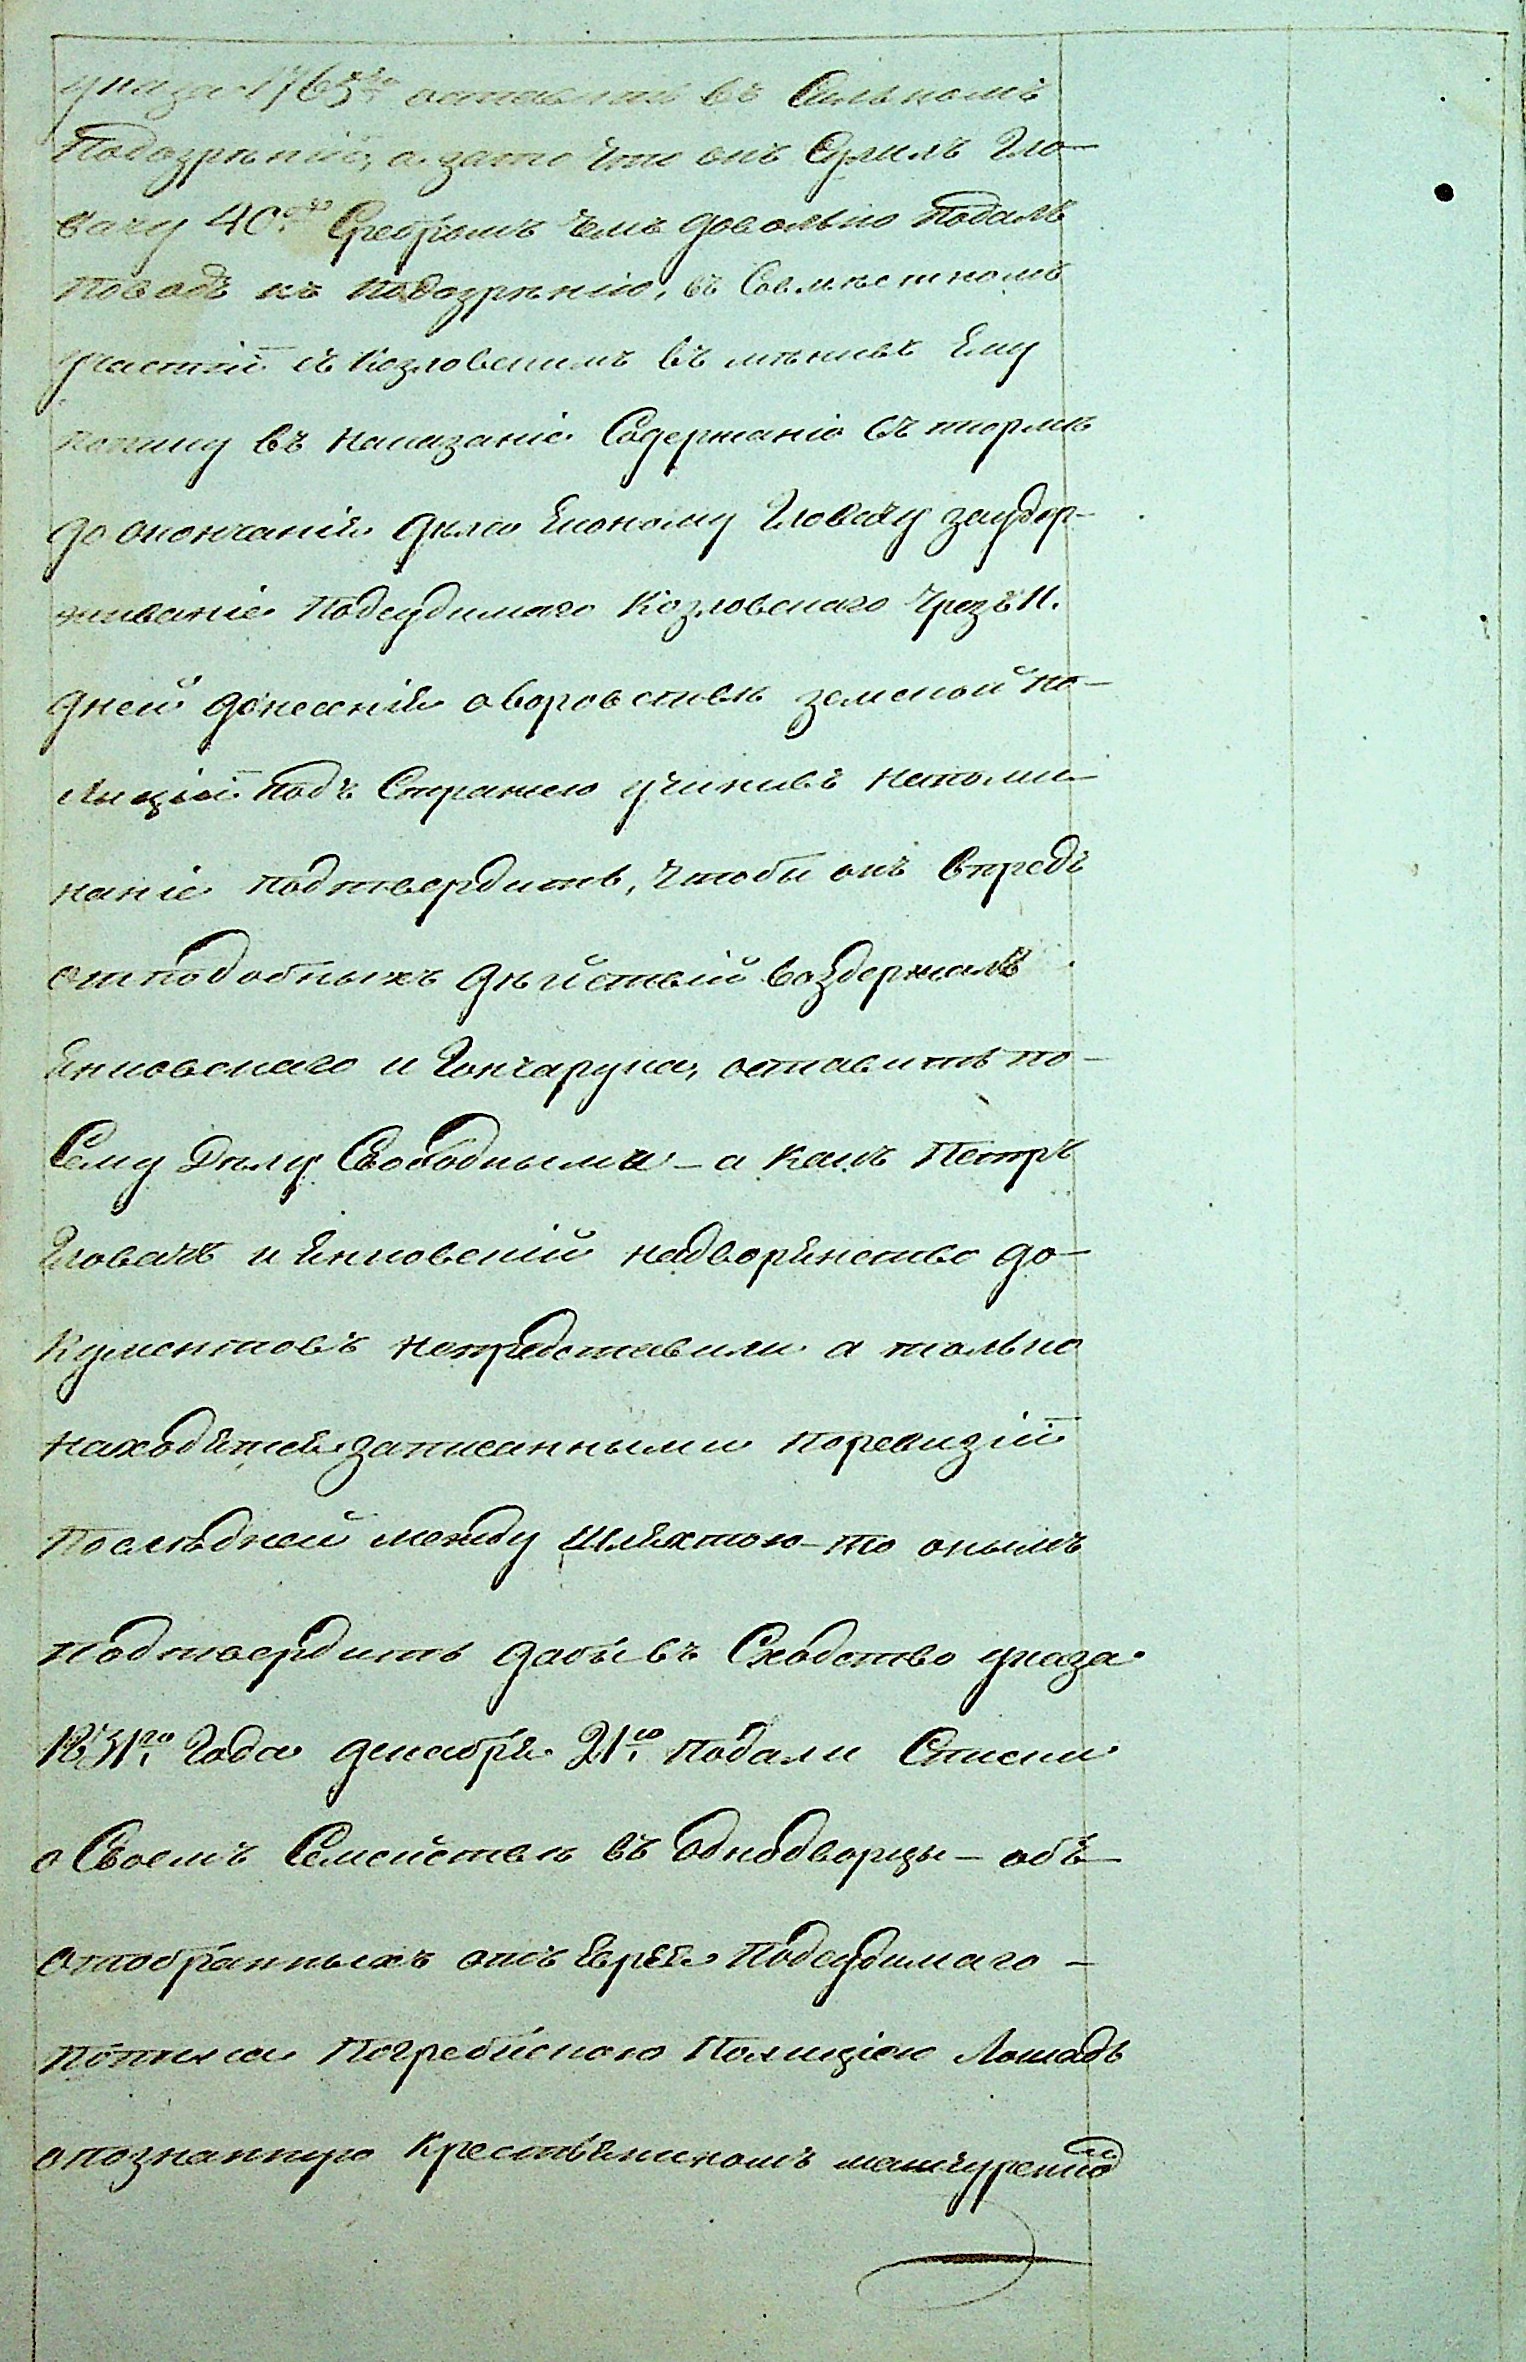 указа 1763го оставить въ Сильномъ
Подозрѣніи, а зато что онъ Сулилъ Гло-
вачу 40. Сребромъ чемъ довольно подалъ
поводъ къ подозрѣнію, въ Совмѣстномъ
участіи съ Козловскимъ въ мѣнивъ Ему
въ наказаніе Содержаніе въ тюрмѣ
до окончанія дѣла Економу Гловачу заудер-
живаніе Подсудимаго Козловскаго чрезъ 11.
дней донесенія оворовствѣ земской по-
лиціи подъ Стражею учинивъ напоми-
наніе подтвердить, чтобы онъ впредь
отподобныхъ дѣйствій воздержалъ
Янковскаго и Гончарука, оставить по-
Сему Дѣлу Свободными – а какъ Петръ
Гловачъ и Янковскій надворянство до-
кументовъ непредставили а только
находятся записанными поревизіи
Последней между Шляхтою – то онымъ
подтвердить дабы въ Сходство указа
1831го Года декабря 21го подали Списки
о Своемъ Семействѣ въ однодворцы – объ
отобранныхъ отъ Еврея Подсудимаго –
Погребискою Полиціею Лошадь
опознанную Крестьяниномъ